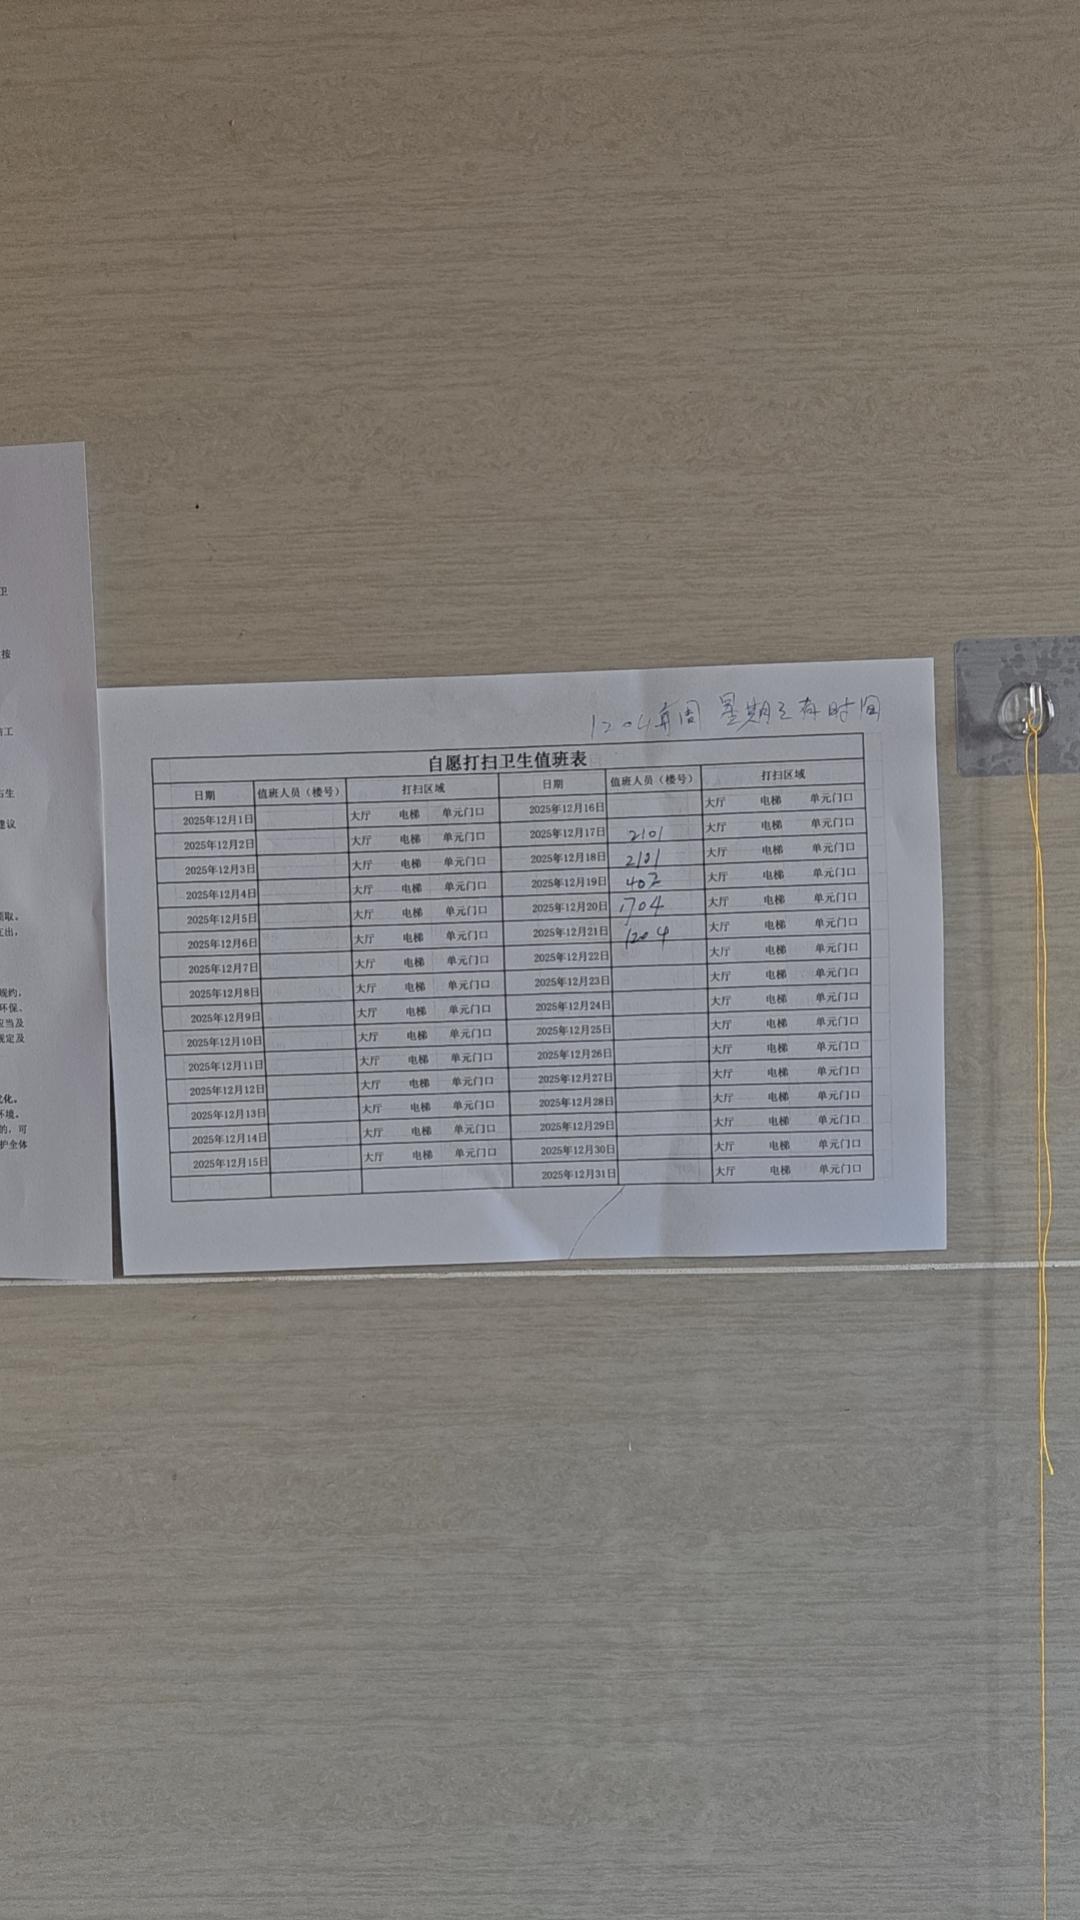 卫
按
工
生
建议
取。
规约，
环保、
应当及
规定及
化。
环境。
的，可
护全体
1204每周 星期三有时间
自愿打扫卫生值班表
日期 值班人员（楼号） 打扫区域 日期 值班人员（楼号） 打扫区域
2025年12月1日 大厅 电梯 单元门口 2025年12月16日 大厅 电梯 单元门口
2025年12月2日 大厅 电梯 单元门口 2025年12月17日 2101 大厅 电梯 单元门口
2025年12月3日 大厅 电梯 单元门口 2025年12月18日 2101 大厅 电梯 单元门口
2025年12月4日 大厅 电梯 单元门口 2025年12月19日 402 大厅 电梯 单元门口
2025年12月5日 大厅 电梯 单元门口 2025年12月20日 1704 大厅 电梯 单元门口
2025年12月6日 大厅 电梯 单元门口 2025年12月21日 1204 大厅 电梯 单元门口
2025年12月7日 大厅 电梯 单元门口 2025年12月22日 大厅 电梯 单元门口
2025年12月8日 大厅 电梯 单元门口 2025年12月23日 大厅 电梯 单元门口
2025年12月9日 大厅 电梯 单元门口 2025年12月24日 大厅 电梯 单元门口
2025年12月10日 大厅 电梯 单元门口 2025年12月25日 大厅 电梯 单元门口
2025年12月11日 大厅 电梯 单元门口 2025年12月26日 大厅 电梯 单元门口
2025年12月12日 大厅 电梯 单元门口 2025年12月27日 大厅 电梯 单元门口
2025年12月13日 大厅 电梯 单元门口 2025年12月28日 大厅 电梯 单元门口
2025年12月14日 大厅 电梯 单元门口 2025年12月29日 大厅 电梯 单元门口
2025年12月15日 大厅 电梯 单元门口 2025年12月30日 大厅 电梯 单元门口
2025年12月31日 大厅 电梯 单元门口